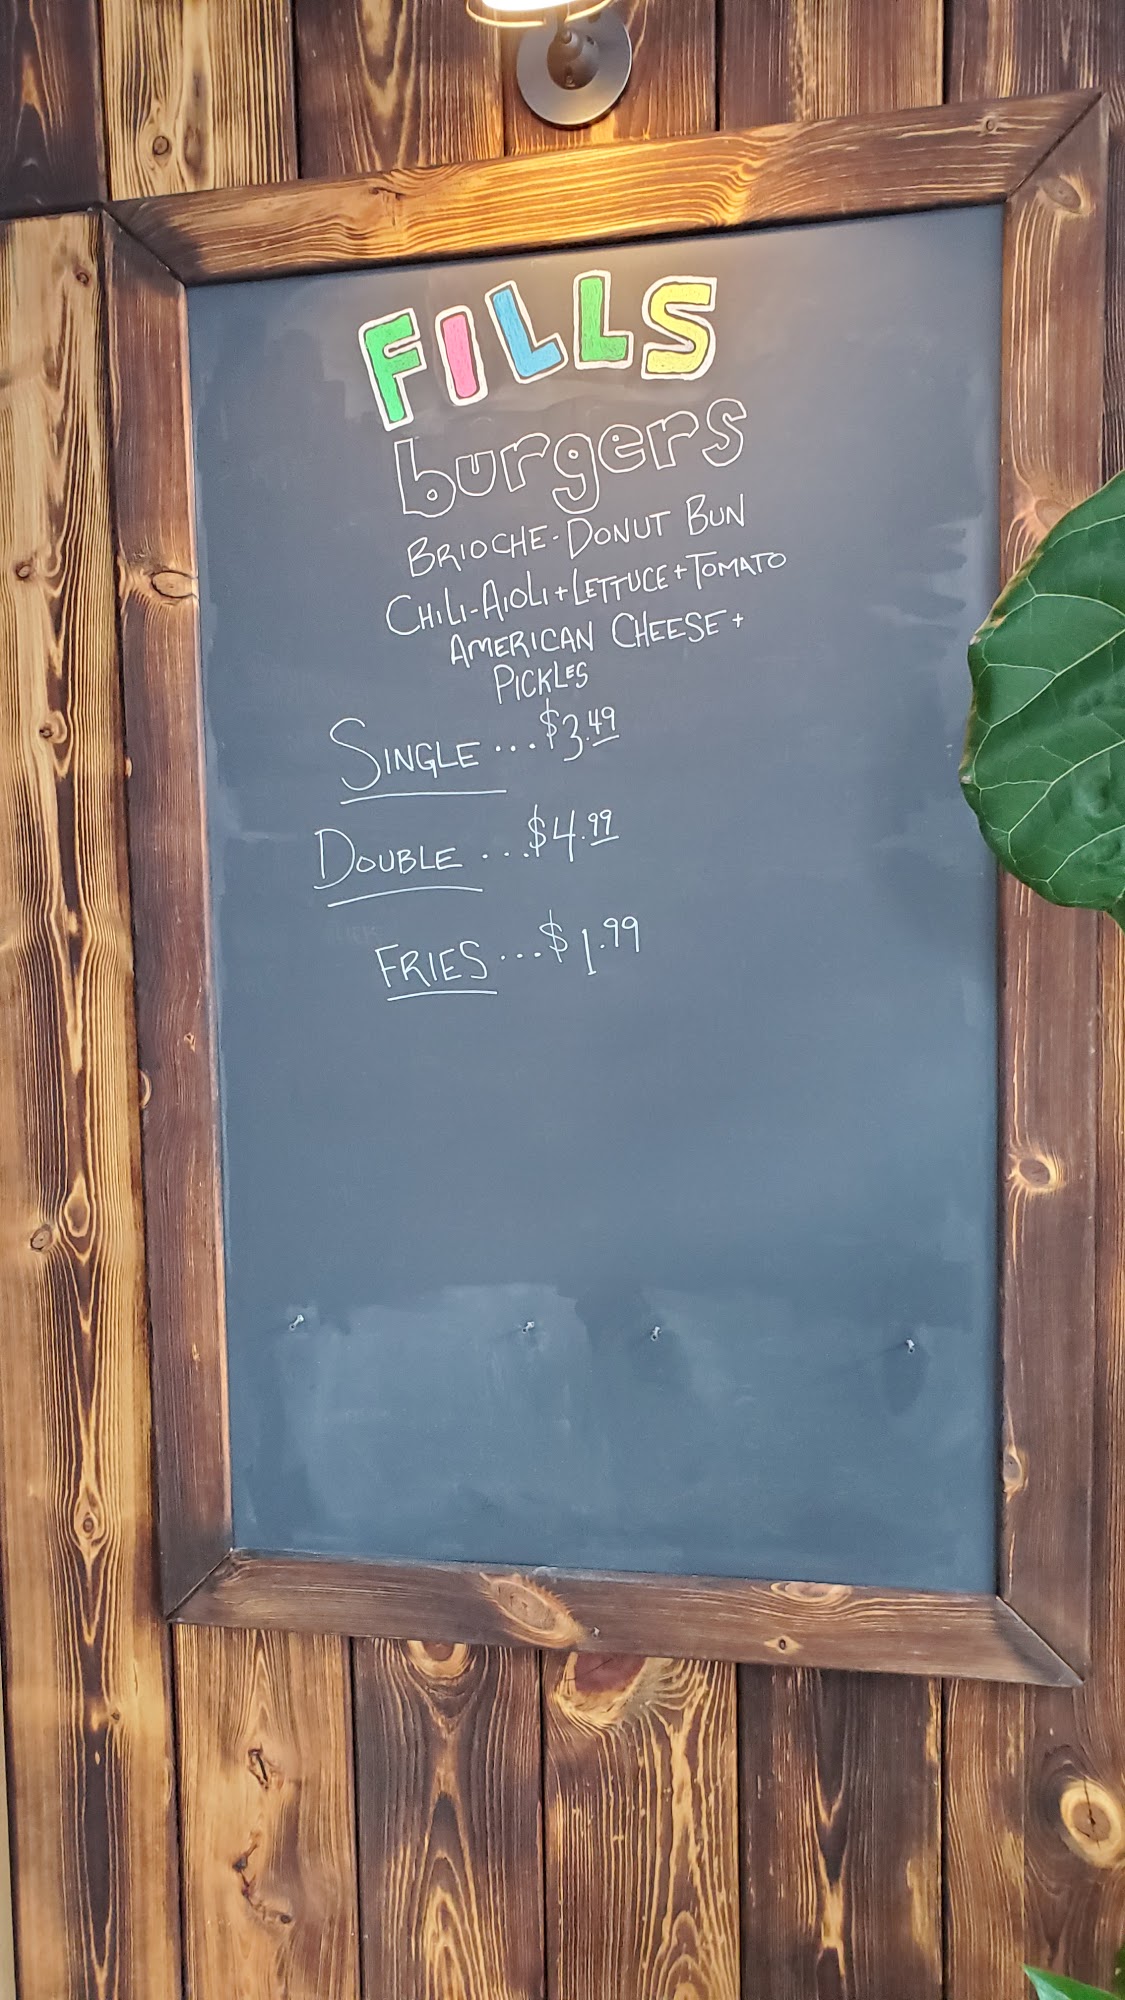 FILLS
burgers
BRIOCHE-DONUT BUN
CHILI-AIOLI+LETTUCE+TOMATO
AMERICAN CHEESE+
PICKLES
SINGLE...$3.49
DOUBLE...$4.99
FRIES...$1.99